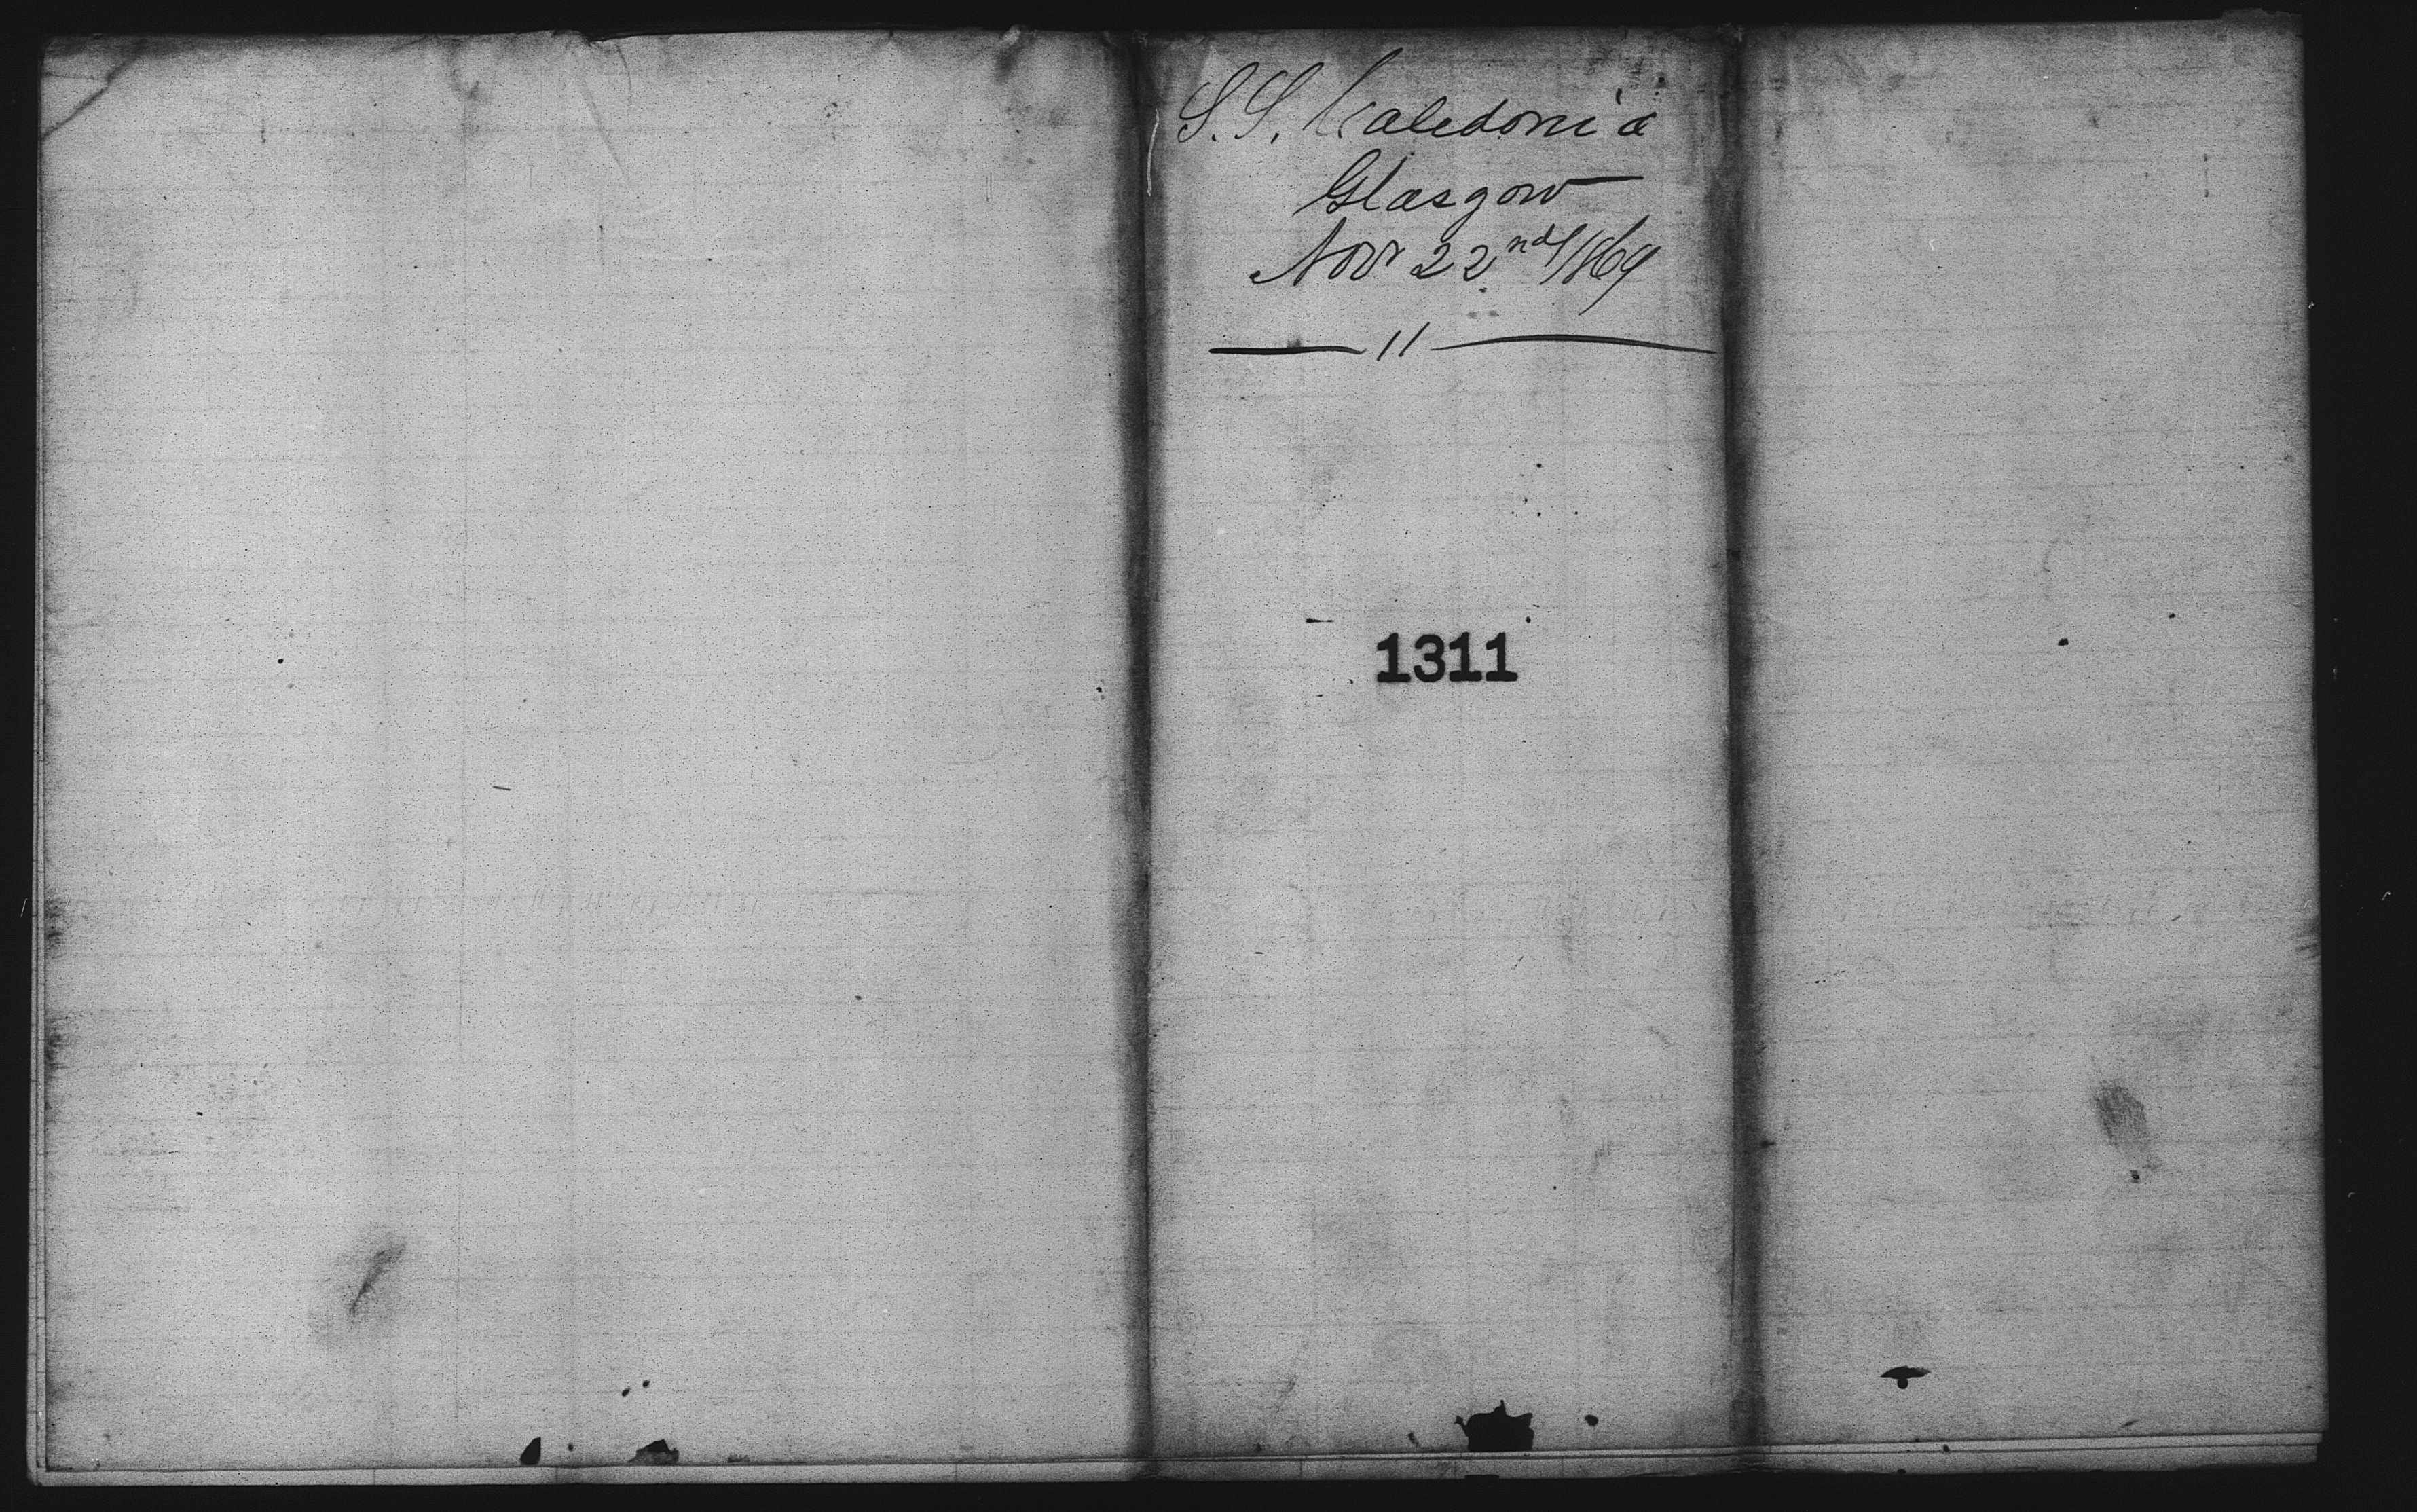 S.S. Caledonia
Glasgow
Nov 22nd/1869
11
1311